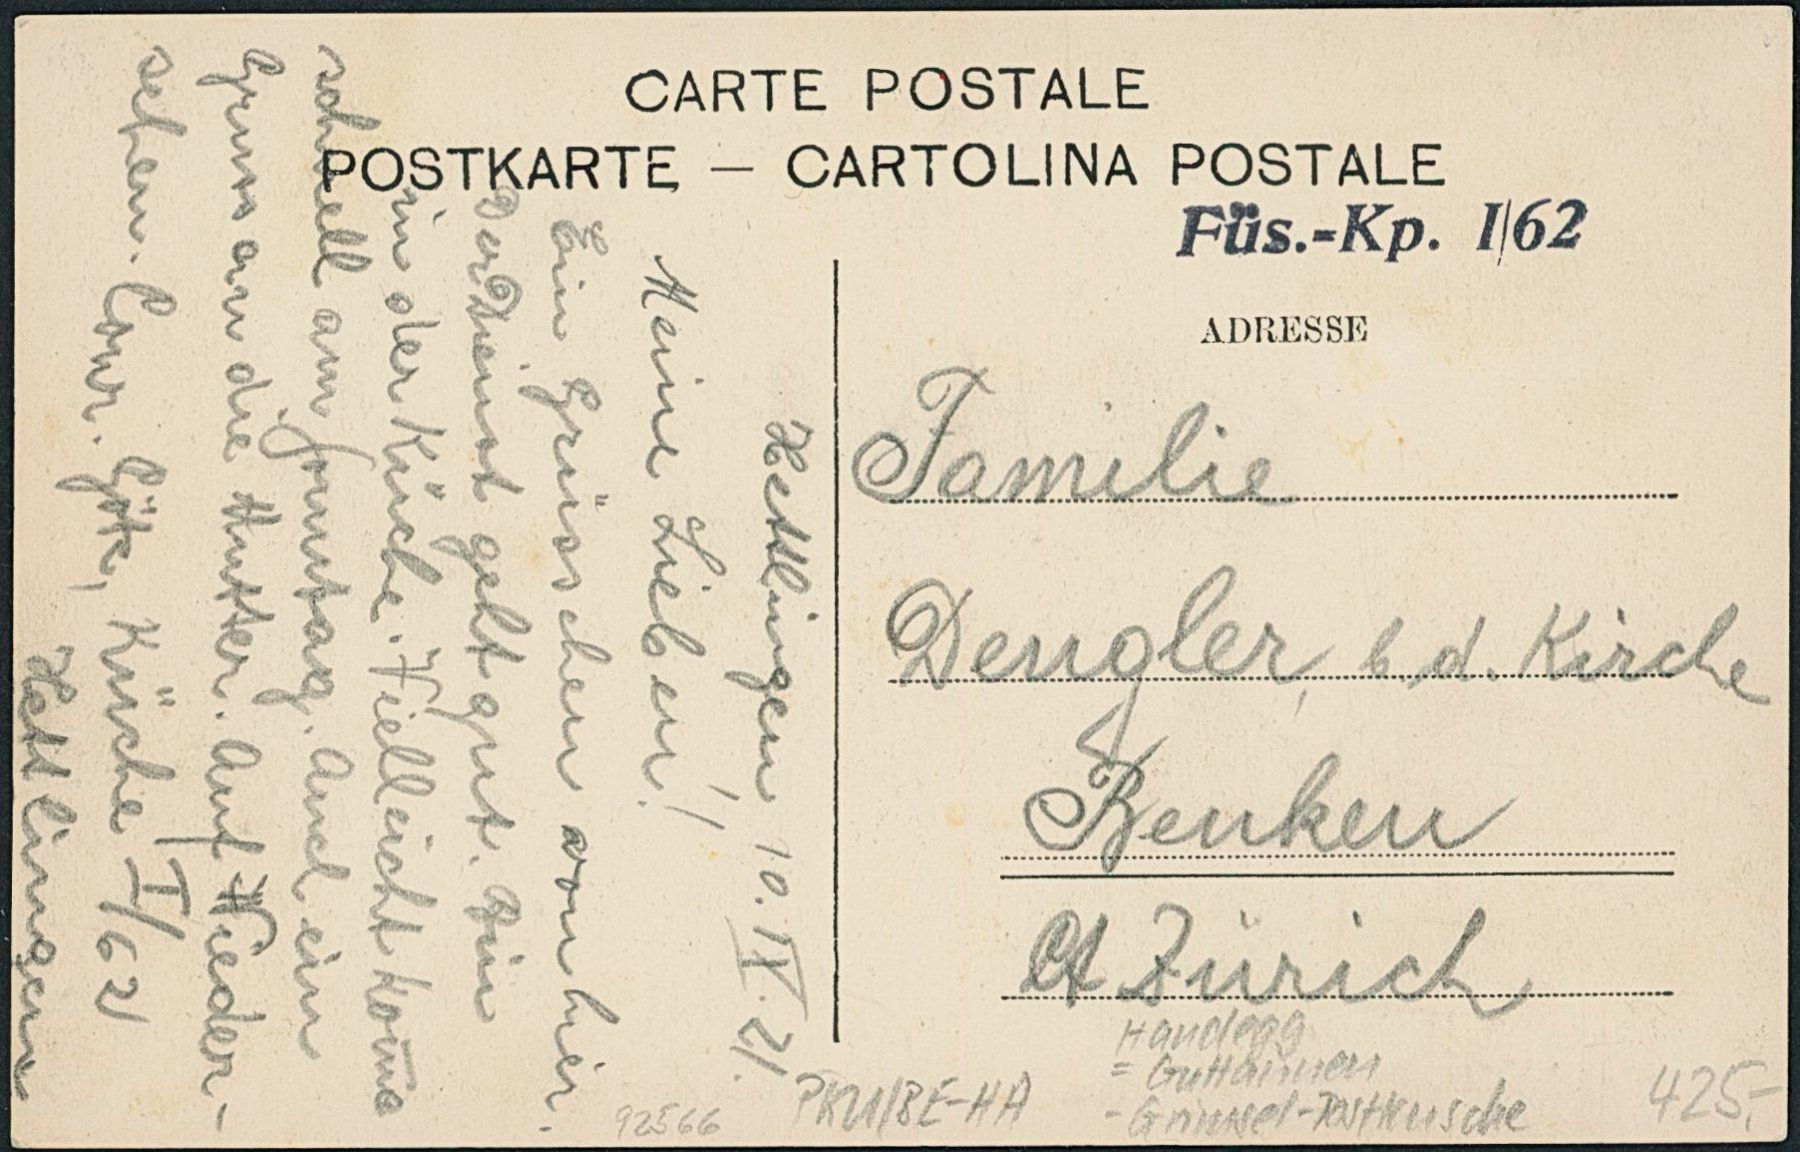 CARTE POSTALE
POSTKARTE — CARTOLINA POSTALE
Füs.-Kp. I/62
ADRESSE
Familie
Dengler, b. d. Kirche
Benken
Ct Zürich
Hettlingen 10. IX. 21.
Meine Lieben!
Ein Grüsschen von hier.
Der Dienst geht gut. Bin
in der Küche. Vielleicht kom̄e
schnell am Sonntag. Auch ein
Gruss an die Mutter. Auf Wieder-
sehen. Conr. Götz, Küche I/62
Hettlingen
Handegg
= Guttannen
- Grimsel-Postkutsche
PKU/BE-HA
92566
425,-